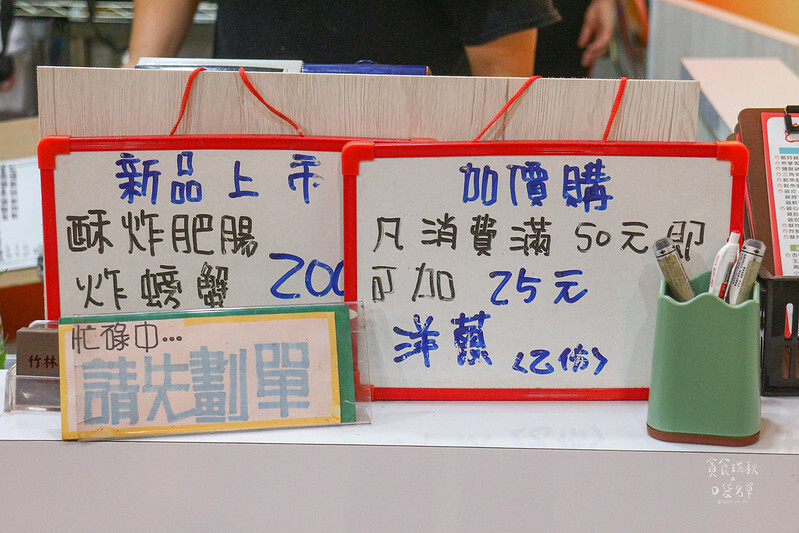 新品上市
酥炸肥腸
炸螃蟹 200
加價購
凡消費滿50元即
可加 25元
洋蔥 <乙份>
忙碌中...
請先劃單
竹林
貪食瑞秋
口袋名單